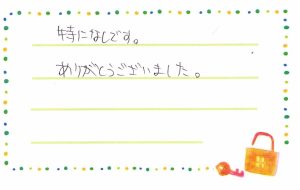 特になしです。
ありがとうございました。